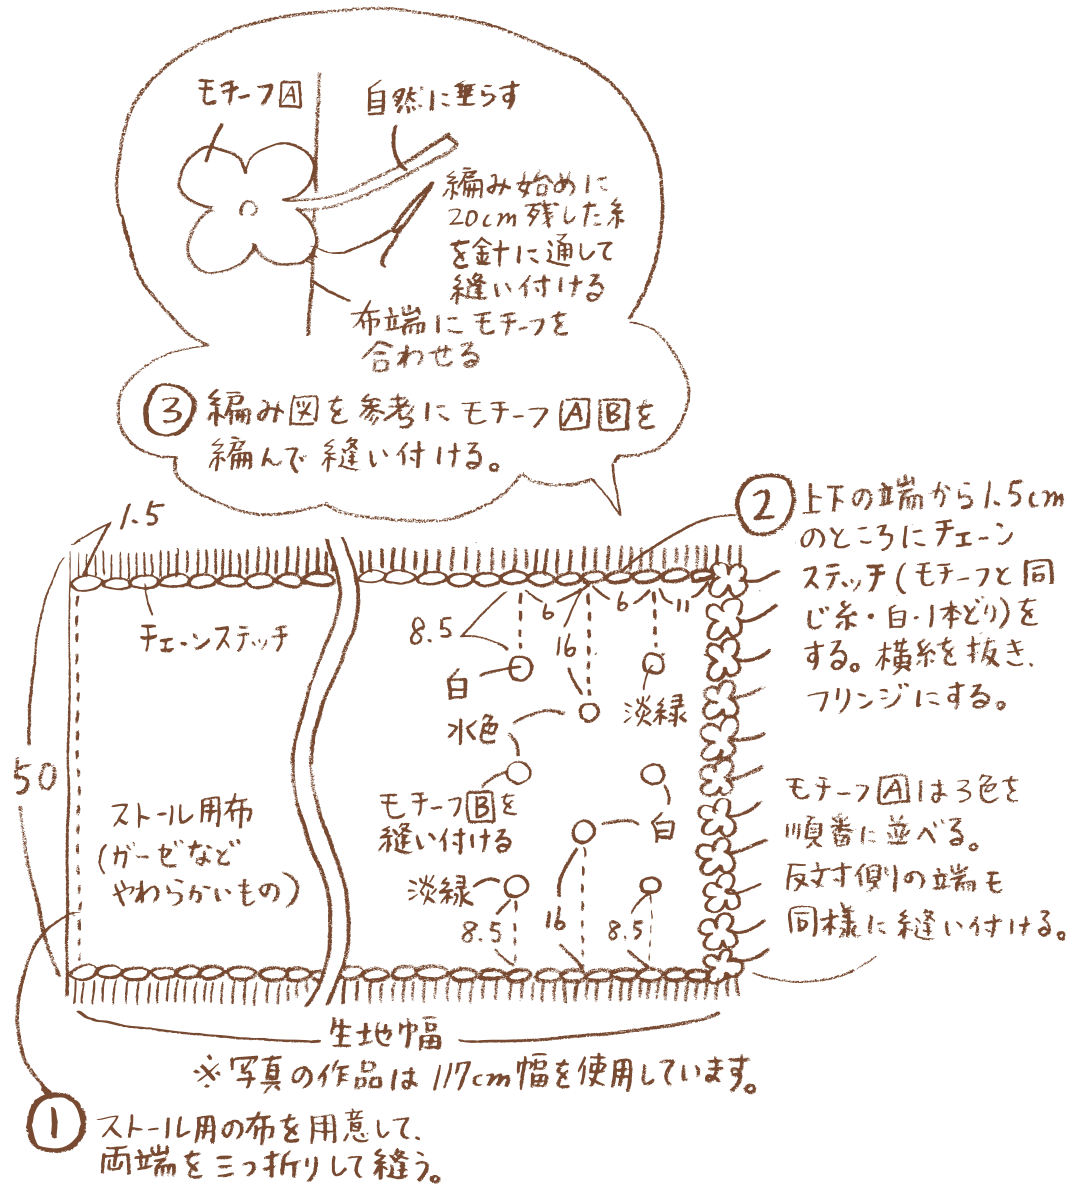 モチーフA
自然に垂らす
編み始めに
20cm残した糸
を針に通して
縫い付ける
布端にモチーフを
合わせる
③ 編み図を参考にモチーフABを
編んで縫い付ける。
1.5
② 上下の端から1.5cm
のところにチェーン
ステッチ(モチーフと同
じ糸・白・1本どり)を
する。横糸を抜き、
フリンジにする。
チェーンステッチ
8.5
6
16
6
11
白
水色
淡緑
50
ストール用布
(ガーゼなど
やわらかいもの)
モチーフBを
縫い付ける
白
淡緑
8.5
16
8.5
モチーフAは3色を
順番に並べる。
反対側の端も
同様に縫い付ける。
生地幅
※写真の作品は117cm幅を使用しています。
① ストール用の布を用意して、
両端を三つ折りして縫う。